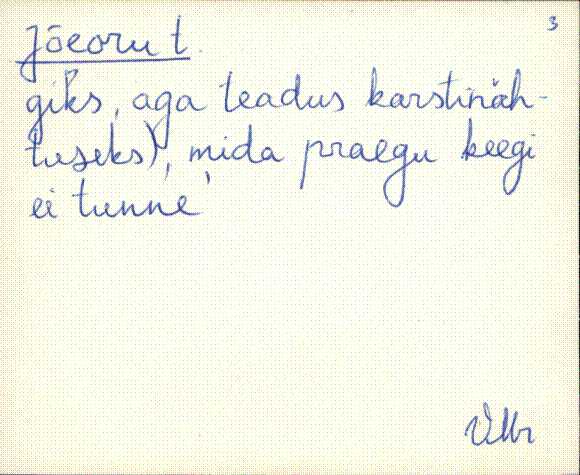 3
Jõeoru t.
giks, aga teadus karstinäh-
tuseks), mida praegu keegi
ei tunne'